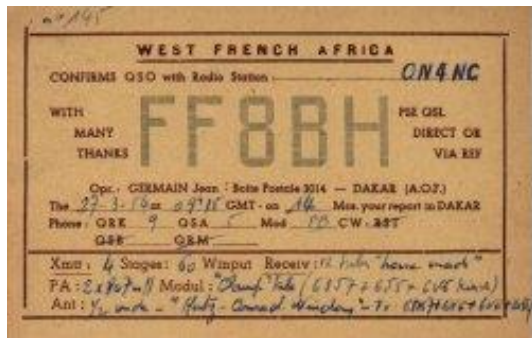 n° 145
WEST FRENCH AFRICA
CONFIRMS QSO with Radio Station ON4NC
WITH MANY THANKS
FF8BH
PSE QSL DIRECT OR VIA REF
Opr. : GERMAIN Jean : Boite Postale 3014 — DAKAR (A.O.F.)
The 27-3-56 at GMT - on 14 Mcs. your report in DAKAR
Phone : QRK 9 QSA 5 Mod CW - RST
QSB QRM
Xmtr : 4 Stages : 60 Winput Receiv : 12 tubes "home made"
PA : Modul : "Clamp" Tube
Ant : 1/2 onde - "Hertz - Conrad Windom" -